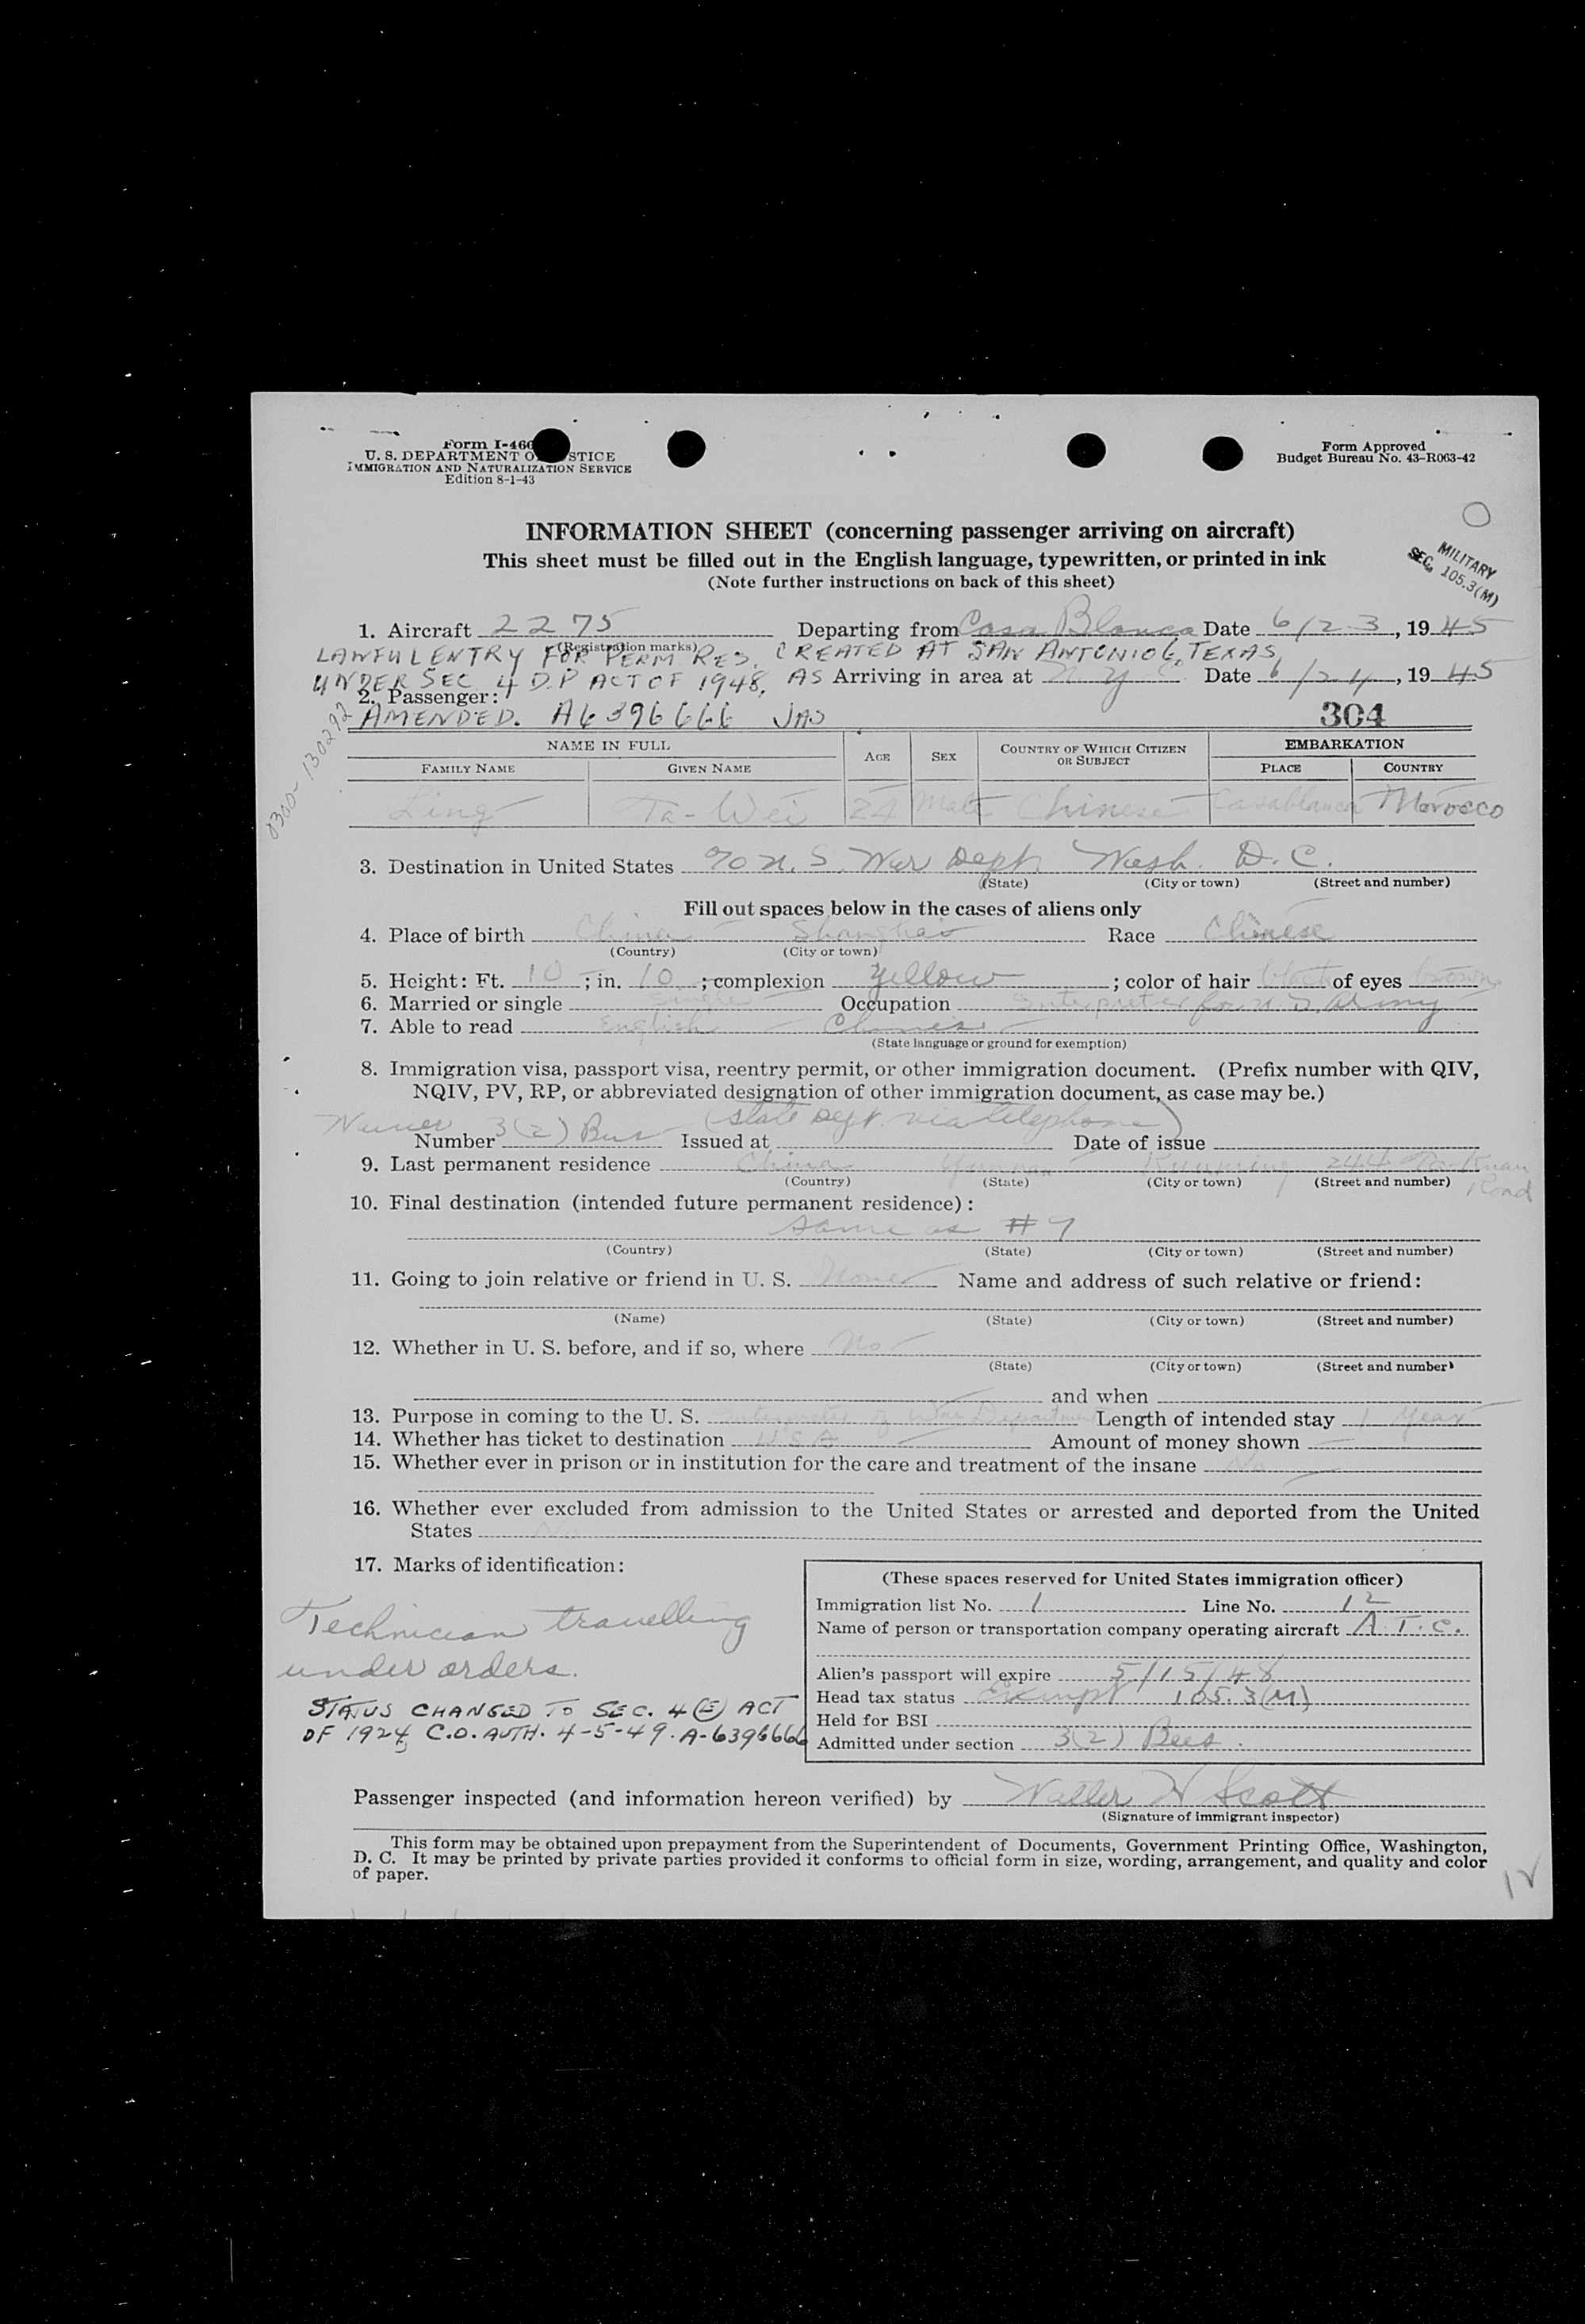 Form I-466
U. S. DEPARTMENT OF JUSTICE
IMMIGRATION AND NATURALIZATION SERVICE
Edition 8-1-43
Form Approved
Budget Bureau No. 43-R063-42
INFORMATION SHEET (concerning passenger arriving on aircraft)
This sheet must be filled out in the English language, typewritten, or printed in ink
(Note further instructions on back of this sheet)
MILITARY
SEC. 105.3(M)
1. Aircraft 2275 Departing from Casa Blanca Date 6/23, 1945
(Registration marks)
LAWFUL ENTRY FOR PERM RES. CREATED AT SAN ANTONIO, TEXAS,
UNDER SEC 4 D.P ACT OF 1948, AS Arriving in area at N Y C Date 6/24, 1945
2. Passenger:
AMENDED. A6396666 304
0300-130292
NAME IN FULL AGE SEX COUNTRY OF WHICH CITIZEN OR SUBJECT EMBARKATION
FAMILY NAME GIVEN NAME PLACE COUNTRY
Ling Ta-Wei 24 Male Chinese Casablanca Morocco
3. Destination in United States % U. S. War Dept Wash. D. C.
(State) (City or town) (Street and number)
Fill out spaces below in the cases of aliens only
4. Place of birth China Shanghai Race Chinese
(Country) (City or town)
5. Height: Ft. 10; in. 10; complexion Yellow; color of hair black of eyes brown
6. Married or single Single Occupation Interpreter for U.S. Army
7. Able to read English Chinese
(State language or ground for exemption)
8. Immigration visa, passport visa, reentry permit, or other immigration document. (Prefix number with QIV,
NQIV, PV, RP, or abbreviated designation of other immigration document, as case may be.)
Waiver 3(2) Bus (State Dept. via telephone)
Number Issued at Date of issue
9. Last permanent residence China Yunnan Kunming 244 Kuan Road
(Country) (State) (City or town) (Street and number)
10. Final destination (intended future permanent residence):
Same as #9
(Country) (State) (City or town) (Street and number)
11. Going to join relative or friend in U. S. None Name and address of such relative or friend:
(Name) (State) (City or town) (Street and number)
12. Whether in U. S. before, and if so, where No
(State) (City or town) (Street and number)
and when
13. Purpose in coming to the U. S. Interpreter of War Department Length of intended stay 1 year
14. Whether has ticket to destination U S A Amount of money shown —
15. Whether ever in prison or in institution for the care and treatment of the insane No
16. Whether ever excluded from admission to the United States or arrested and deported from the United
States No
17. Marks of identification:
Technician travelling
under orders.
STATUS CHANGED TO SEC. 4(E) ACT
OF 1924, C.O. AUTH. 4-5-49. A-6396666
(These spaces reserved for United States immigration officer)
Immigration list No. 1 Line No. 12
Name of person or transportation company operating aircraft A.T.C.
Alien's passport will expire 5/15/48
Head tax status Exempt 105.3(M)
Held for BSI
Admitted under section 3(2) Bus.
Passenger inspected (and information hereon verified) by Walter W Scott
(Signature of immigrant inspector)
This form may be obtained upon prepayment from the Superintendent of Documents, Government Printing Office, Washington,
D. C. It may be printed by private parties provided it conforms to official form in size, wording, arrangement, and quality and color
of paper.
12